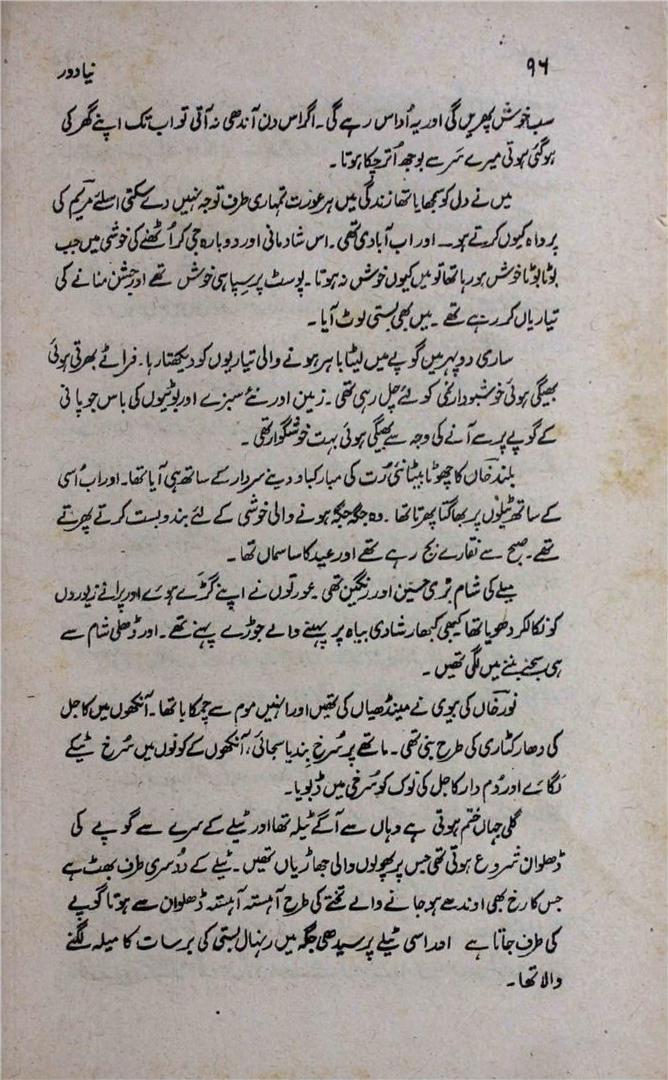 ۹۶
نیا دور
سب خوش پھریں گی اور یہ اُداس رہے گی۔ اگر اس دن آندھی نہ آتی تو اب تک اپنے گھر کی
ہو گئی ہوتی میرے سَر سے بوجھ اُتر چکا ہوتا۔
میں نے دل کو سمجھایا تھا زندگی میں ہر عورت تمہاری طرف توجہ نہیں دے سکتی اسلئے مریم کی
پرواہ کیوں کرتے ہو۔ اور اب آبادی تھی۔ اس شادمانی اور دوبارہ جی کر اُٹھنے کی خوشی میں جب
بوٹا بوٹا خوش ہو رہا تھا تو میں کیوں خوش نہ ہوتا۔ پوسٹ پر سپاہی خوش تھے اور جشن منانے کی
تیاریاں کر رہے تھے۔ میں بھی بستی لوٹ آیا۔
ساری دوپہر میں گوپے میں لیٹا باہر ہونے والی تیاریوں کو دیکھتا رہا۔ فراٹے بھرتی ہوئی
بھیگی ہوئی خوشبودار خُنکی کو لئے چل رہی تھی۔ زمین اور نئے سبزے اور بوٹیوں کی باس جو پانی
کے گوپے پر سے آنے کی وجہ سے بھیگی ہوئی بہت خوشگوار تھی۔
بلند خاں کا چھوٹا بیٹا نئی رُت کی مبارکباد دینے سردار کے ساتھ ہی آیا تھا۔ اور اب اُسی
کے ساتھ ٹیلوں پر بھاگتا پھرتا تھا۔ وہ جگہ جگہ ہونے والی خوشی کے لئے بندوبست کرتے پھرتے
تھے۔ صبح سے نقارے بج رہے تھے اور عید کا سا سماں تھا۔
میلے کی شام بڑی حسین اور رنگین تھی۔ عورتوں نے اپنے گڑے ہوئے اور پرانے زیوروں
کو نکال کر دھویا تھا کبھی کبھار شادی بیاہ پر پہننے والے جوڑے پہنے تھے۔ اور ڈھلی شام سے
ہی سجنے بننے میں لگی تھیں۔
نور خاں کی بیوی نے مینڈھیاں کی تھیں اور انہیں موم سے چمکایا تھا۔ آنکھوں میں کاجل
کی دھار کٹاری کی طرح بنی تھی۔ ماتھے پر سُرخ بِندیا سجائی، آنکھوں کے کونوں میں سُرخ ٹیکے
لگائے اور دُم دار کاجل کی نوک کو سُرخی میں ڈبویا۔
گلی جہاں ختم ہوتی ہے وہاں سے آگے ٹیلہ تھا اور ٹیلے کے سرے سے گوپے کی
ڈھلوان شروع ہوتی تھی جس پر پھولوں والی جھاڑیاں تھیں۔ ٹیلے کے دوسری طرف بھٹ ہے
جس کا رخ بھی اوندھے ہو جانے والے تختے کی طرح آہستہ آہستہ ڈھلوان سے ہوتا گوپے
کی طرف جاتا ہے اور اسی ٹیلے پر سیدھی جگہ میں رنہال بستی کی برسات کا میلہ لگنے
والا تھا۔